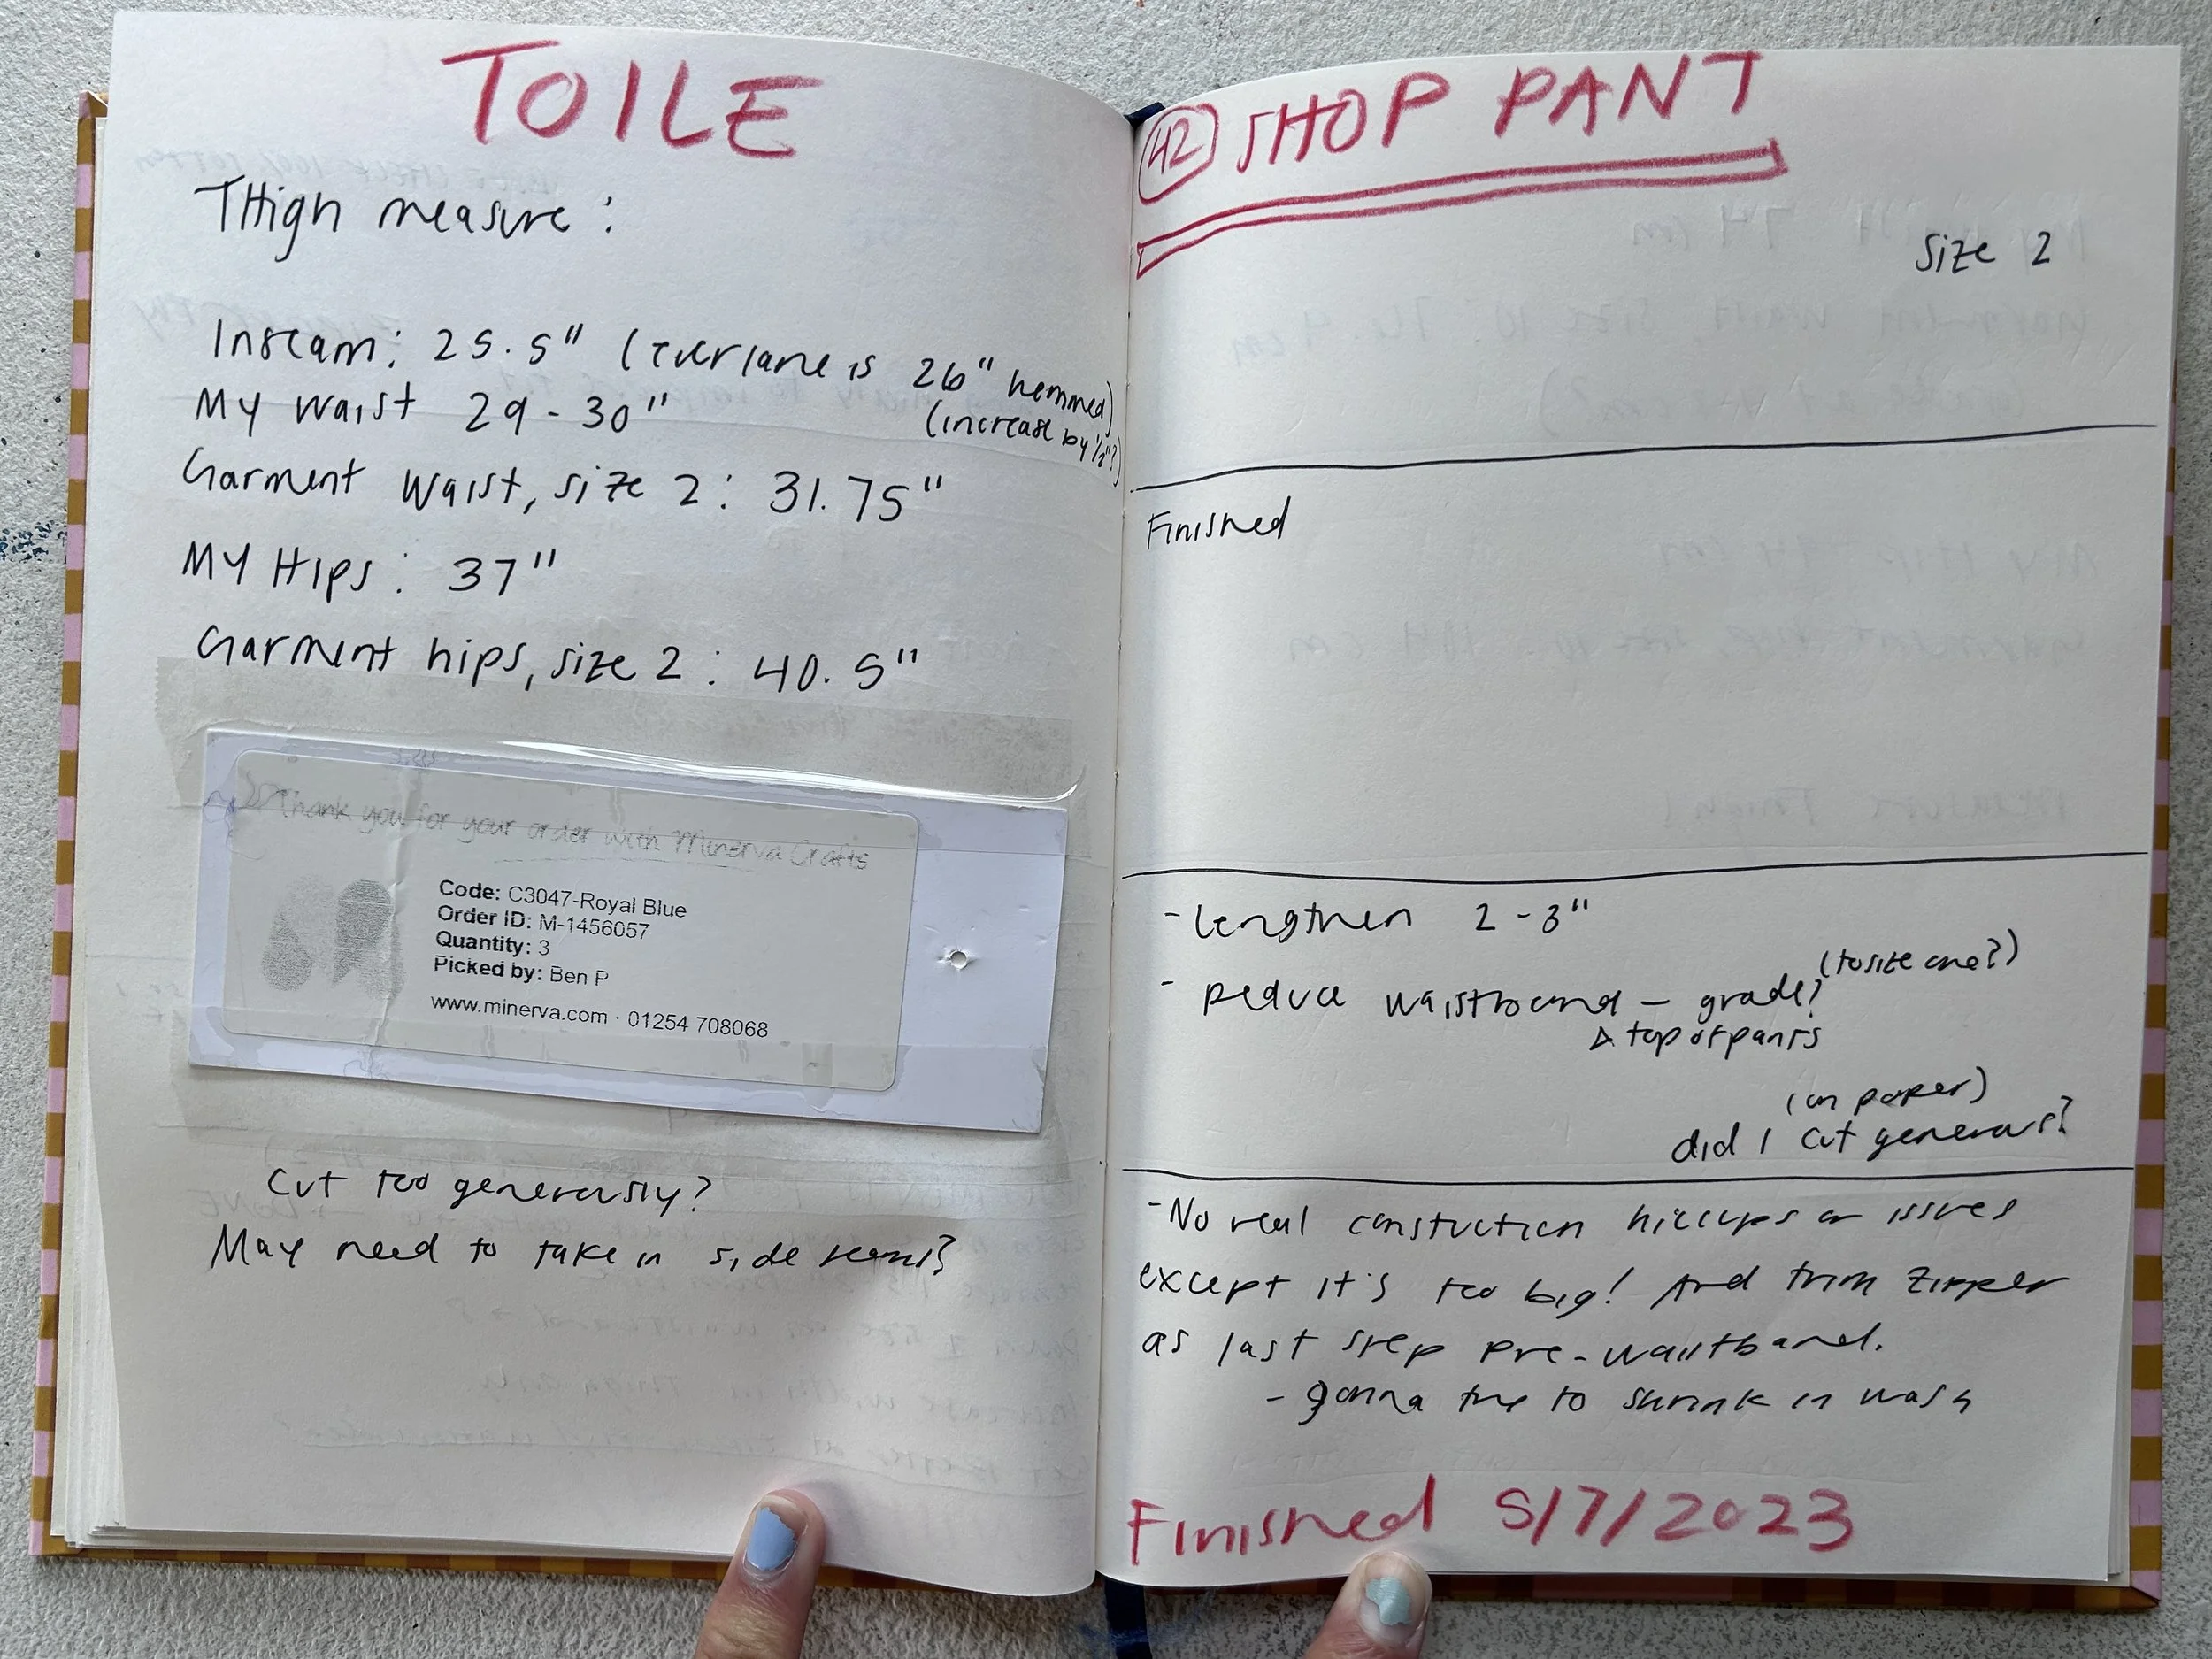 TOILE
THigh measure :
Inseam: 25.5" (Everlane is 26" hemmed)
(increase by 1/2"?)
My waist 29-30"
Garment waist, size 2: 31.75"
MY HIps: 37"
Garment hips, size 2: 40.5"
Thank you for your order with Minerva Crafts
Code: C3047-Royal Blue
Order ID: M-1456057
Quantity: 3
Picked by: Ben P
www.minerva.com · 01254 708068
Cut too generously?
May need to take in side seams?
42 SHOP PANT
Size 2
Finished
- lengthen 2-3"
(to size one?)
- reduce waistband - grade?
top of pants
(on paper)
did I cut generous?
- No real constuction hiccups or issues
except it's too big! And trim zipper
as last step pre-waistband.
- gonna try to shrink in wash
Finished 5/7/2023